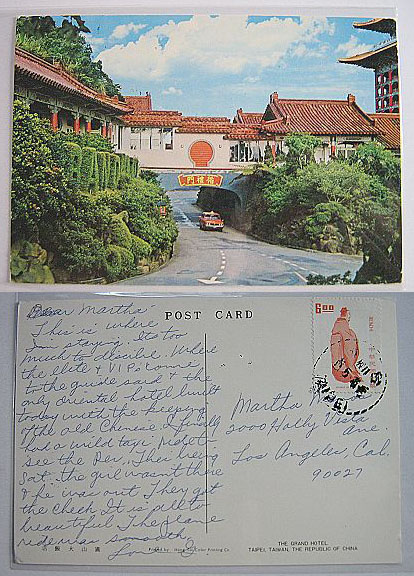 Dear Martha
POST CARD
This is where
I'm staying. Its too
much to describe. Where
the elite & VIPs come
to the guide said & the
only oriental hotel built
today with the keeping
of the old Chinese. I finally
had a wild taxi ride to
see the Rev. Their being
Sat. the girl wasn't there
& he was out. They got
the check. It is all so
beautiful. The plane
ride was smooth
Love
6.00
Martha
2000 Holly Vista
Ave.
Los Angeles, Cal.
90027
THE GRAND HOTEL
TAIPEI, TAIWAN, THE REPUBLIC OF CHINA
圓山大飯店
Color Printing Co.